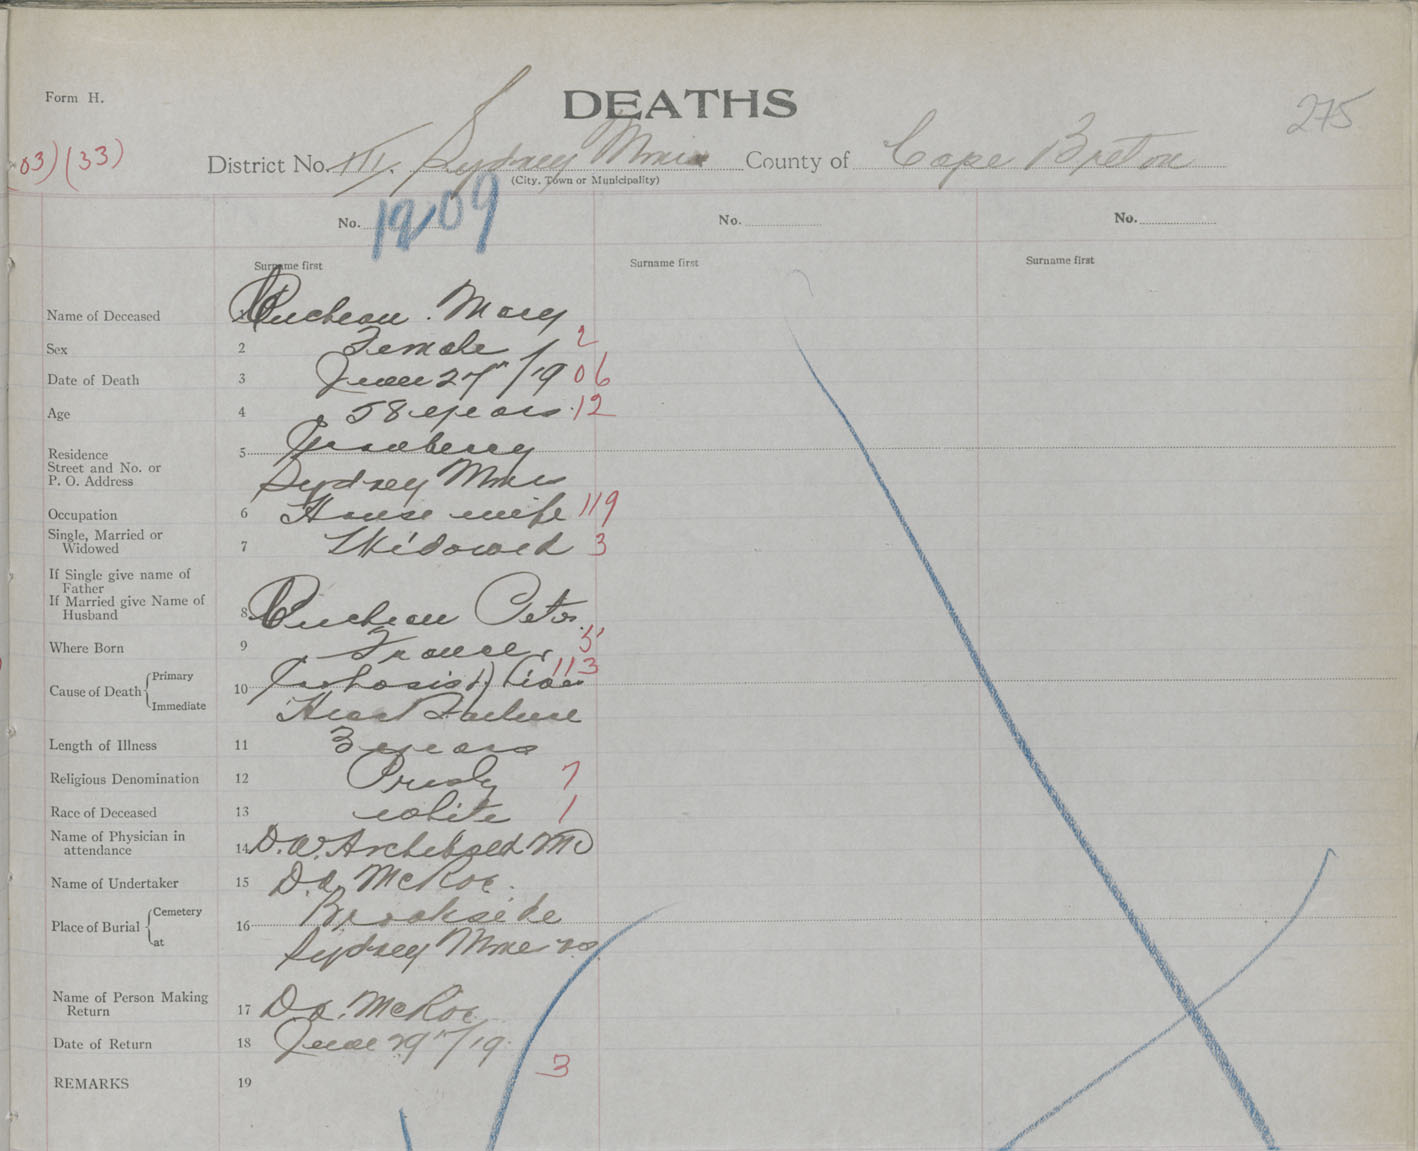 Form H.
DEATHS
275
03) (33)
District No. Sydney Mines County of Cape Breton
(City, Town or Municipality)
No. 1209 No. No.
Surname first Surname first Surname first
Name of Deceased 1 Mary
Sex 2 Female 2
Date of Death 3 June 27" /19 06
Age 4 58 years 12
Residence 5 Cranberry
Street and No. or
P. O. Address Sydney Mines
Occupation 6 House wife 119
Single, Married or
Widowed 7 Widowed 3
If Single give name of
Father
If Married give Name of
Husband 8 Peter
Where Born 9 France 5
Cause of Death Primary 10 113
Immediate Heart Failure
Length of Illness 11 3 years
Religious Denomination 12 Presby 7
Race of Deceased 13 white 1
Name of Physician in
attendance 14 D. W. Archibald MD
Name of Undertaker 15 D. A. McRae
Place of Burial Cemetery 16 Brookside
at Sydney Mines
Name of Person Making
Return 17 D A. McRae
Date of Return 18 June 29" /19
3
REMARKS 19